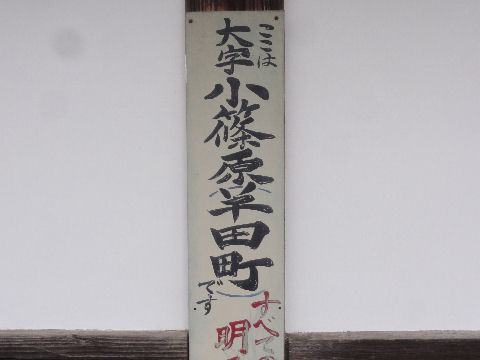 ここは
大字小篠原羊田町
です
すべての
明